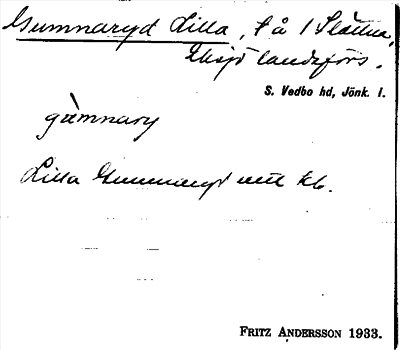 Gumnaryd Lilla, f å 1 Slättna,
Eksjö landsförs.
S. Vedbo hd, Jönk. l.
gùmnary
Lilla Gummaryd utt kb.
FRITZ ANDERSSON 1933.